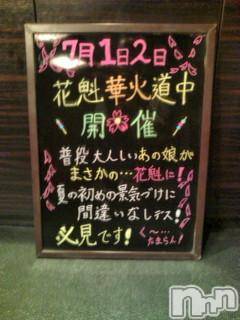 7月1日2日
花魁華火道中
開催
普段大人しいあの娘が
まさかの…花魁に!
夏の初めの景気づけに
間違いなしデス!
必見です!
く〜…
たまらん!